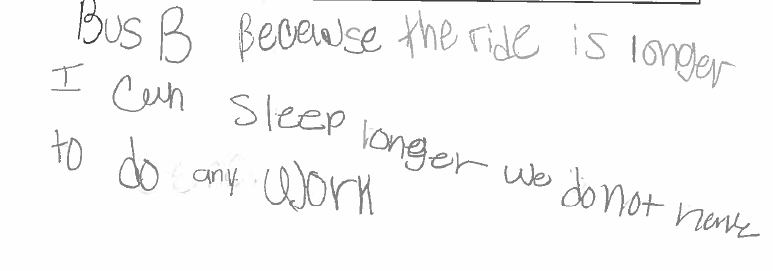 Bus B Because the ride is longer
I Can Sleep longer we do not have
to do any Work